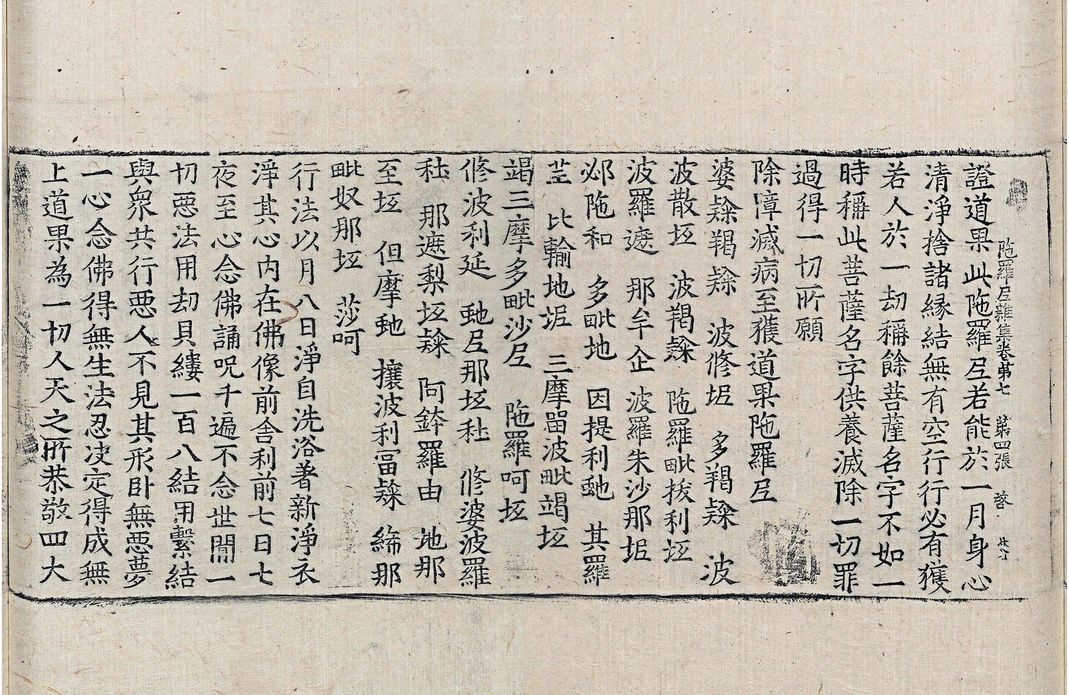 陁羅尼雜集卷第七　第四張
證道果此陁羅尼若能於一月身心
清淨捨諸緣結無有空行行必有獲
若人於一劫稱餘菩薩名字不如一
時稱此菩薩名字供養滅除一切罪
過得一切所願
除障滅病至獲道果陁羅尼
婆䠠羯䠠　波修坭　多羯䠠　波
波散坘　波羯䠠　陁羅毗拔利坘
波羅遮　那牟企　波羅朱沙那坭
邲陁和　多毗地　因提利虵　其羅
比輸地坭　三摩留波毗竭坘
竭三摩多毗沙尼　陁羅呵坘
修波利延　虵尼那坘　修婆波羅
那遮梨坘䠠　阿鉢羅由　地那
至坘　但摩虵　攘波利富䠠　締那
毗奴那坘　莎呵
行法以月八日淨自洗浴著新淨衣
淨其心內在佛像前舍利前七日七
夜至心念佛誦呪千遍不念世閒一
切惡法用劫貝縷一百八結用繫結
與衆共行惡人不見其形卧無惡夢
一心念佛得無生法忍决定得成無
上道果為一切人天之所恭敬四大